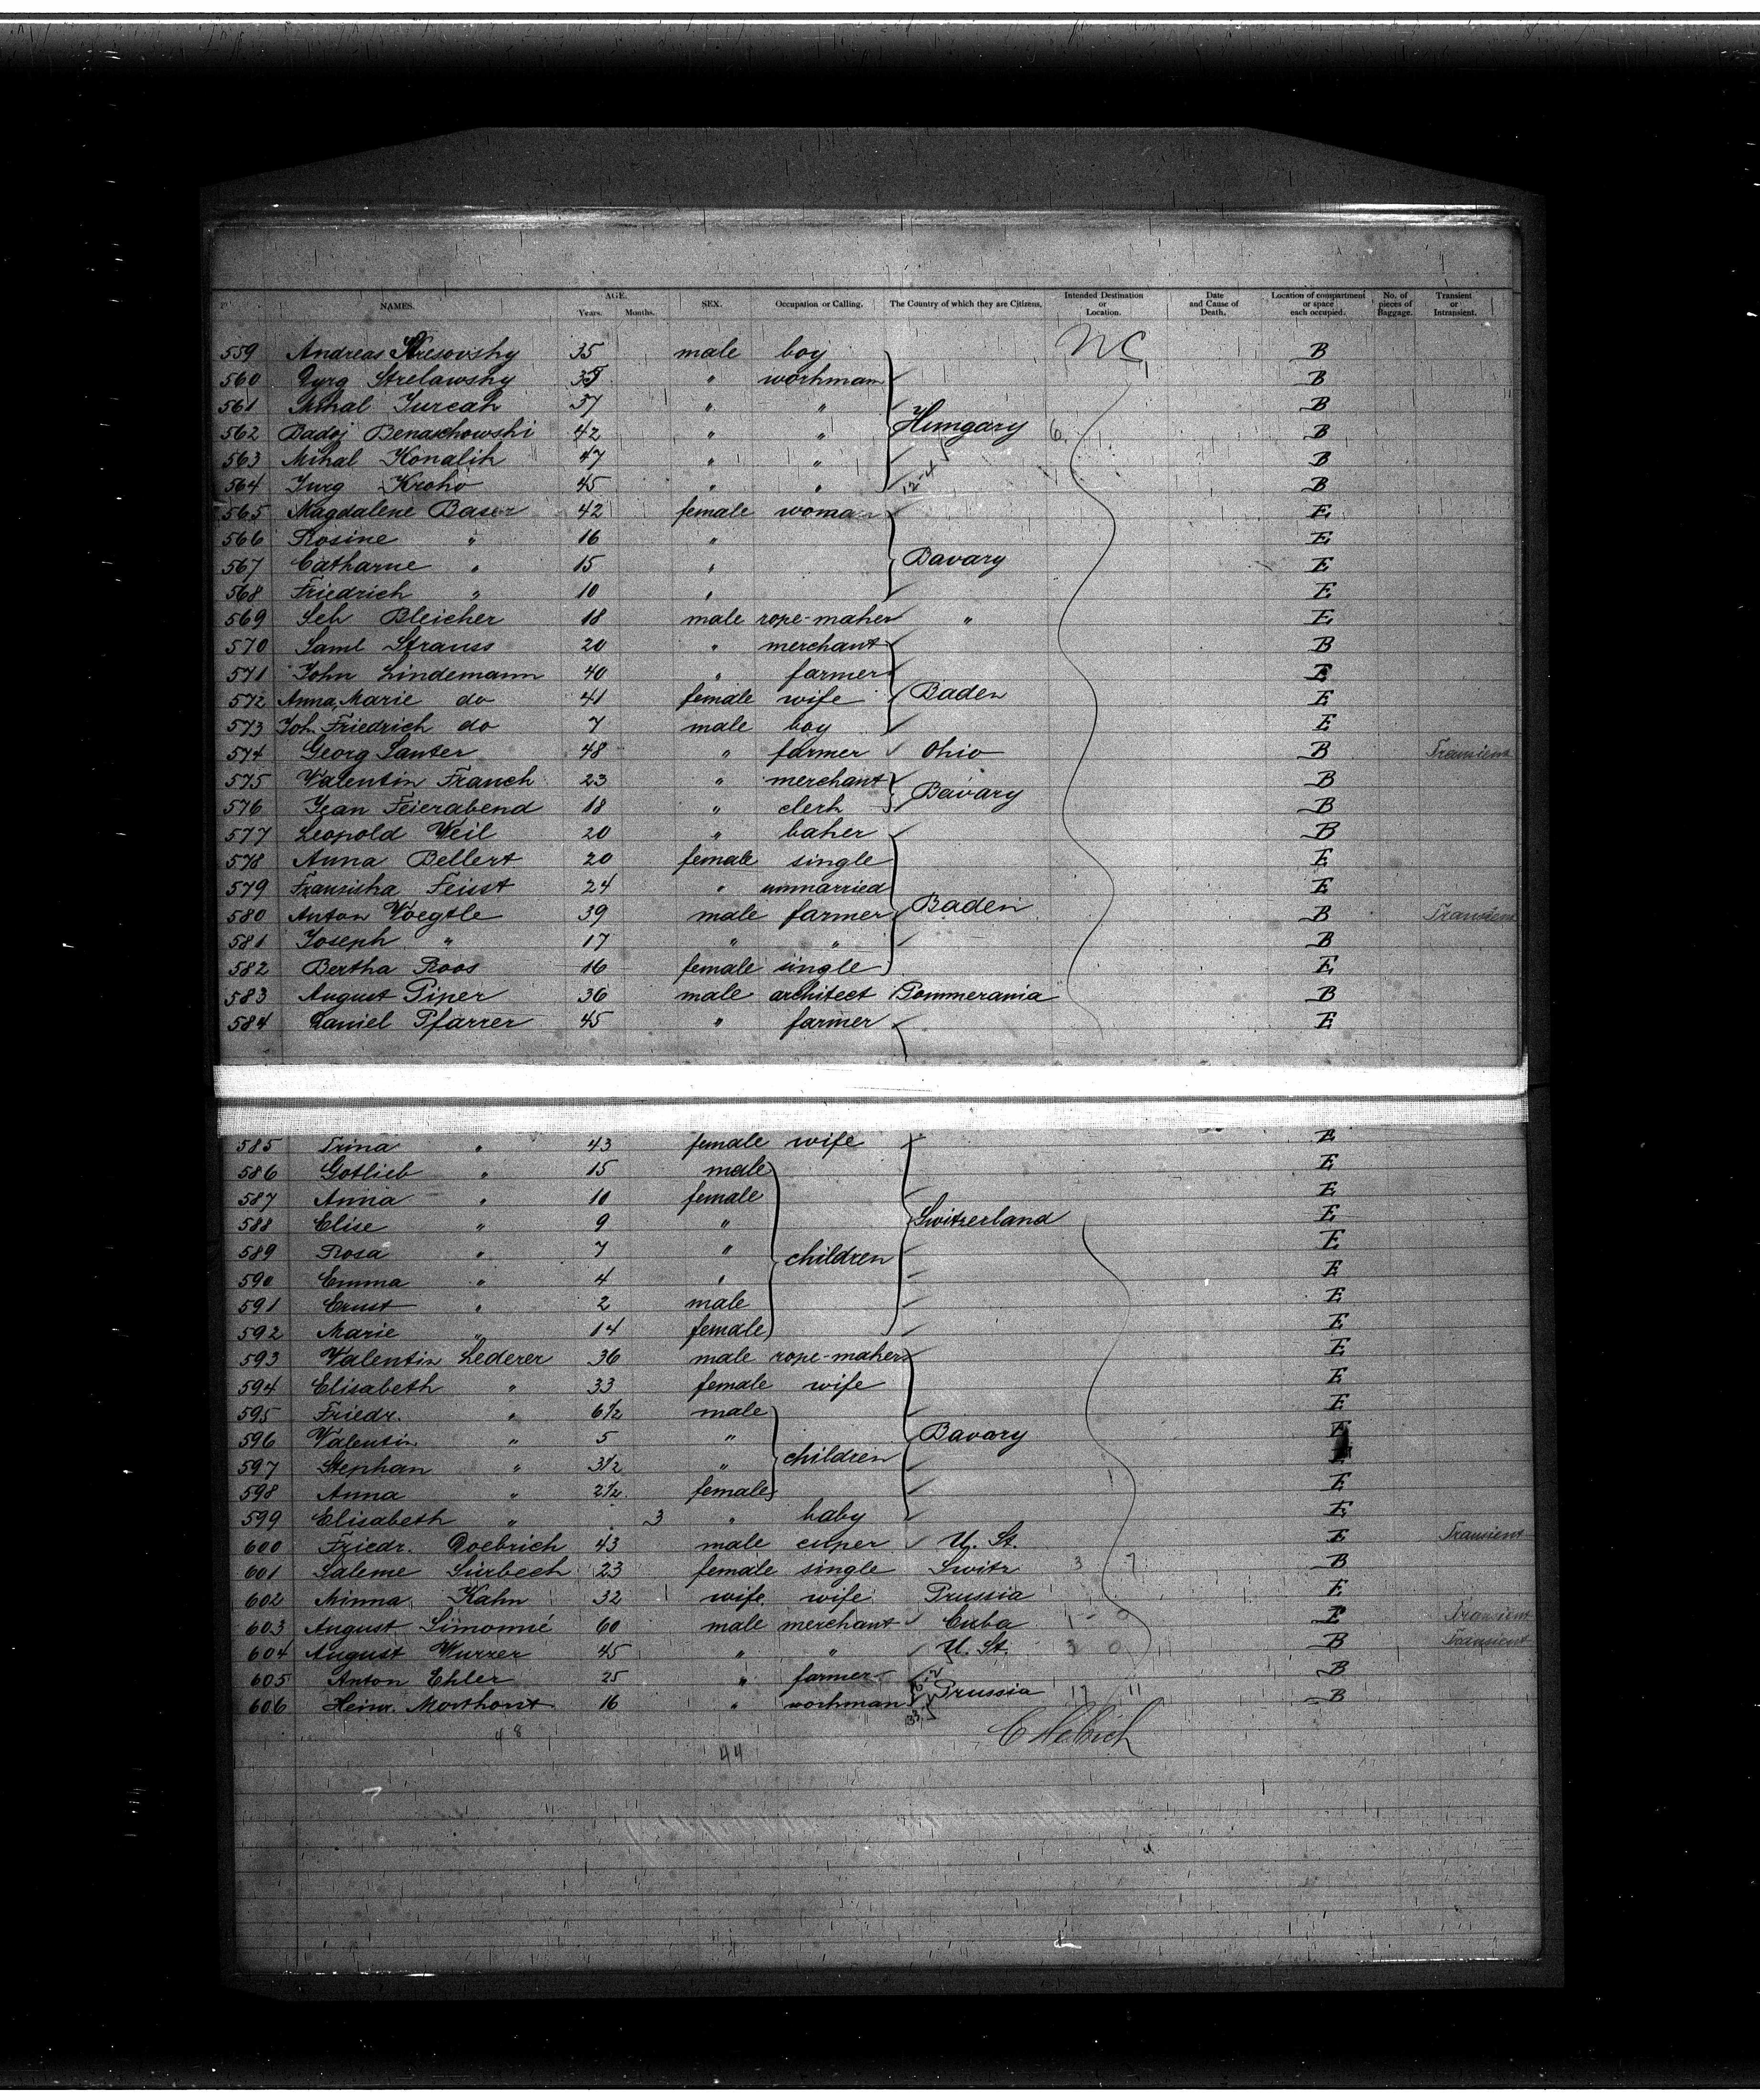 NAMES. AGE. Years. Months. SEX. Occupation or Calling. The Country of which they are Citizens. Intended Destination or Location. Date and Cause of Death. Location of compartment or space each occupied. No. of pieces of Baggage. Transient or Intransient.
559 Andreas 35 male boy NC B
560 Strelawsky 35 " workman B
561 Mihal Jurcak 37 " " B
562 Badoj Benaschowski 42 " " Hungary 6 B
563 Mihal Konalik 47 " " B
564 Jurg Kroho 45 " " 12-4 B
565 Magdalene Baser 42 female woman E
566 Rosine " 16 " E
567 Catharine " 15 " Bavary E
568 Friedrich " 10 " E
569 Seb Bleicher 18 male rope-maker " E
570 Saml Strauss 20 " merchant B
571 John Lindemann 40 " farmer E
572 Anna Marie do 41 female wife Baden E
573 Joh. Friedrich do 7 male boy E
574 Georg Santer 48 " farmer Ohio B Transient
575 Valentin Franck 23 " merchant B
576 Jean Feierabend 18 " clerk Bavary B
577 Leopold Weil 20 " baker B
578 Anna Bellert 20 female single E
579 Franziska Feisst 24 " unmarried E
580 Anton Voegtle 39 male farmer Baden B Transient
581 Joseph " 17 " " B
582 Bertha Roos 16 female single E
583 August Piper 36 male architect Pommerania B
584 Daniel Pfarrer 45 " farmer E
585 Trina " 43 female wife E
586 Gotlieb " 15 male E
587 Anna " 10 female E
588 Elise " 9 " Switzerland E
589 Rosa " 7 " children E
590 Emma " 4 " E
591 Ernst " 2 male E
592 Marie " 14 female E
593 Valentin Lederer 36 male rope-maker E
594 Elisabeth " 33 female wife E
595 Friedr. " 6½ male E
596 Valentin " 5 " Bavary E
597 Stephan " 3½ " children
598 Anna " 2½ female E
599 Elisabeth " 3 " baby E
600 Friedr. Doebrich 43 male U. St. E Transient
601 Saleme Surbech 23 female single Switz 3 7 B
602 Minna Kahn 32 wife wife Prussia E
603 August Simonné 60 male merchant Cuba 1 0 E Transient
604 August Wurzer 45 " " U. St. 3 0 B Transient
605 Anton Ehler 25 " farmer B
606 Heinr. Morthorst 16 " workman Prussia 12 11 B
48
44